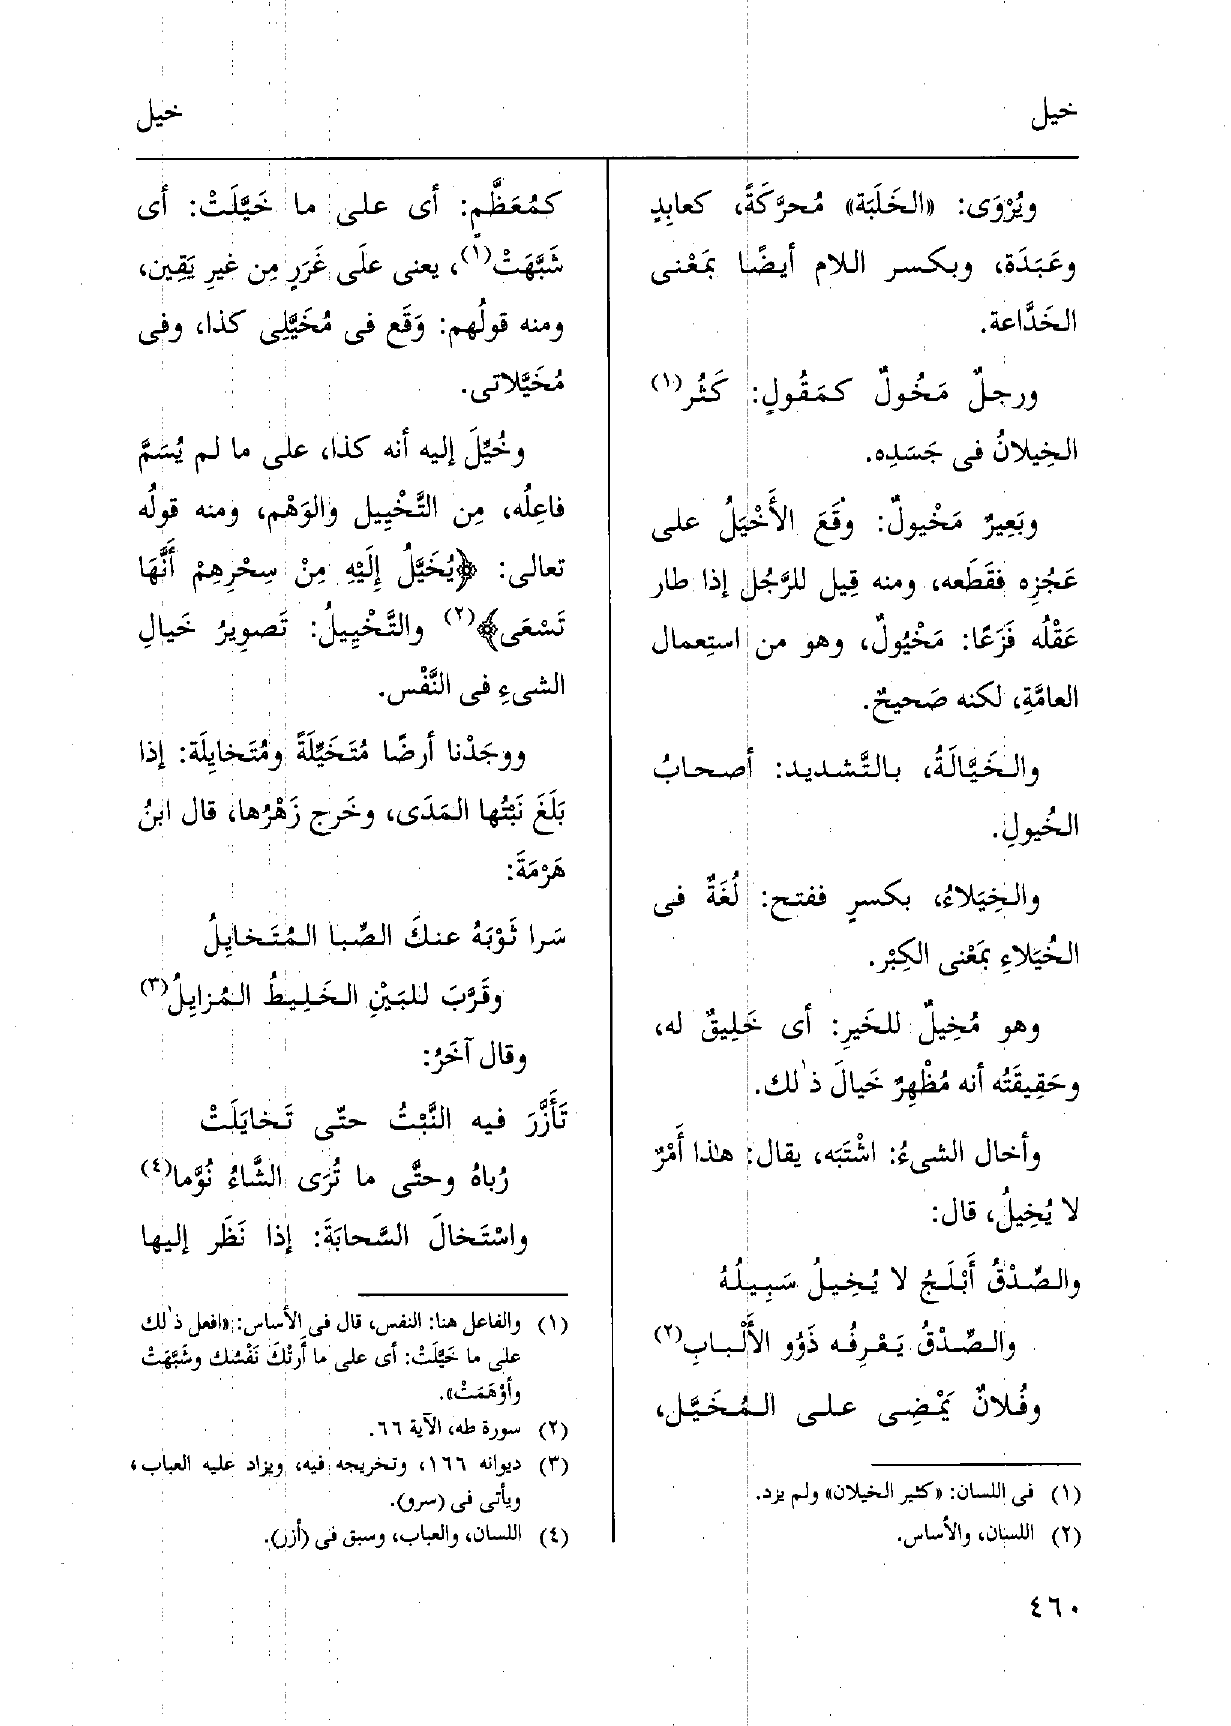 خيل
خيل
ويُرْوَى: «الخَلَبَة» مُحرَّكَةً، كعابِدٍ
وعَبَدَة، وبكسر اللام أيضًا بمَعْنى
الخَدَّاعة.
ورجلٌ مَخُولٌ كمَقُولٍ: كَثُر(١)
الخِيلانُ فى جَسَدِه.
وبَعِيرٌ مَخْيولٌ: وقَعَ الأَخْيَلُ على
عَجُزِه فقَطَعه، ومنه قِيل للرَّجُل إذا طار
عَقْلُه فَزَعًا: مَخْيُولٌ، وهو من استِعمال
العامَّةِ، لكنه صَحيحٌ.
والخَيَّالَةُ، بالتَّشديد: أصحابُ
الخُيولِ.
والخِيَلاءُ، بكسرٍ ففتح: لُغَةٌ فى
الخُيَلاءِ بمَعْنى الكِبْر.
وهو مُخِيلٌ للخَيرِ: أى خَلِيقٌ له،
وحَقِيقَتُه أنه مُظْهِرٌ خَيالَ ذٰلك.
وأخال الشىءُ: اشْتَبَه، يقال: هٰذا أَمْرٌ
لا يُخِيلُ، قال:
والصِّدْقُ أَبْلَجُ لا يُخِيلُ سَبِيلُهُ
والصِّدْقُ يَعْرِفُه ذَوُو الأَلْبابِ(٢)
وفُلانٌ يَمْضِى على المُخَيَّل،
(١) فى اللسان: «كثير الخيلان» ولم يزد.
(٢) اللسان، والأساس.
كمُعَظَّمٍ: أى على ما خَيَّلَتْ: أى
شَبَّهَتْ(١)، يعنى علَى غَرَرٍ مِن غيرِ يَقِين،
ومنه قولُهم: وَقَع فى مُخَيَّلِى كذا، وفى
مُخَيَّلاتى.
وخُيِّلَ إليه أنه كذا، على ما لم يُسَمَّ
فاعِلُه، مِن التَّخْيِيل والوَهْم، ومنه قولُه
تعالى: ﴿يُخَيَّلُ إِلَيْهِ مِنْ سِحْرِهِمْ أَنَّهَا
تَسْعَى﴾(٢) والتَّخْيِيلُ: تَصوِيرُ خَيالِ
الشىءِ فى النَّفْس.
ووجَدْنا أرضًا مُتَخَيِّلَةً ومُتَخايِلَة: إذا
بَلَغَ نَبْتُها المَدَى، وخَرج زَهْرُها، قال ابنُ
هَرْمَةَ:
سَرا ثَوْبَهُ عنكَ الصِّبا المُتَخايِلُ
وقَرَّبَ للبَيْنِ الخَلِيطُ المُزايِلُ(٣)
وقال آخَرُ:
تَأَزَّرَ فيه النَّبْتُ حتّى تَخايَلَتْ
رُباهُ وحتَّى ما تُرَى الشَّاءُ نُوَّما(٤)
واسْتَخالَ السَّحابَةَ: إذا نَظَر إليها
(١) والفاعل هنا: النفس، قال فى الأساس: «افعل ذٰلك
على ما خَيَّلَتْ: أى على ما أَرَتْكَ نَفْسُك وشَبَّهَتْ
وأوْهَمَتْ».
(٢) سورة طه، الآية ٦٦.
(٣) ديوانه ١٦٦، وتخريجه فيه، ويزاد عليه العباب،
ويأتى فى (سرو).
(٤) اللسان، والعباب، وسبق فى (أزر).
٤٦٠